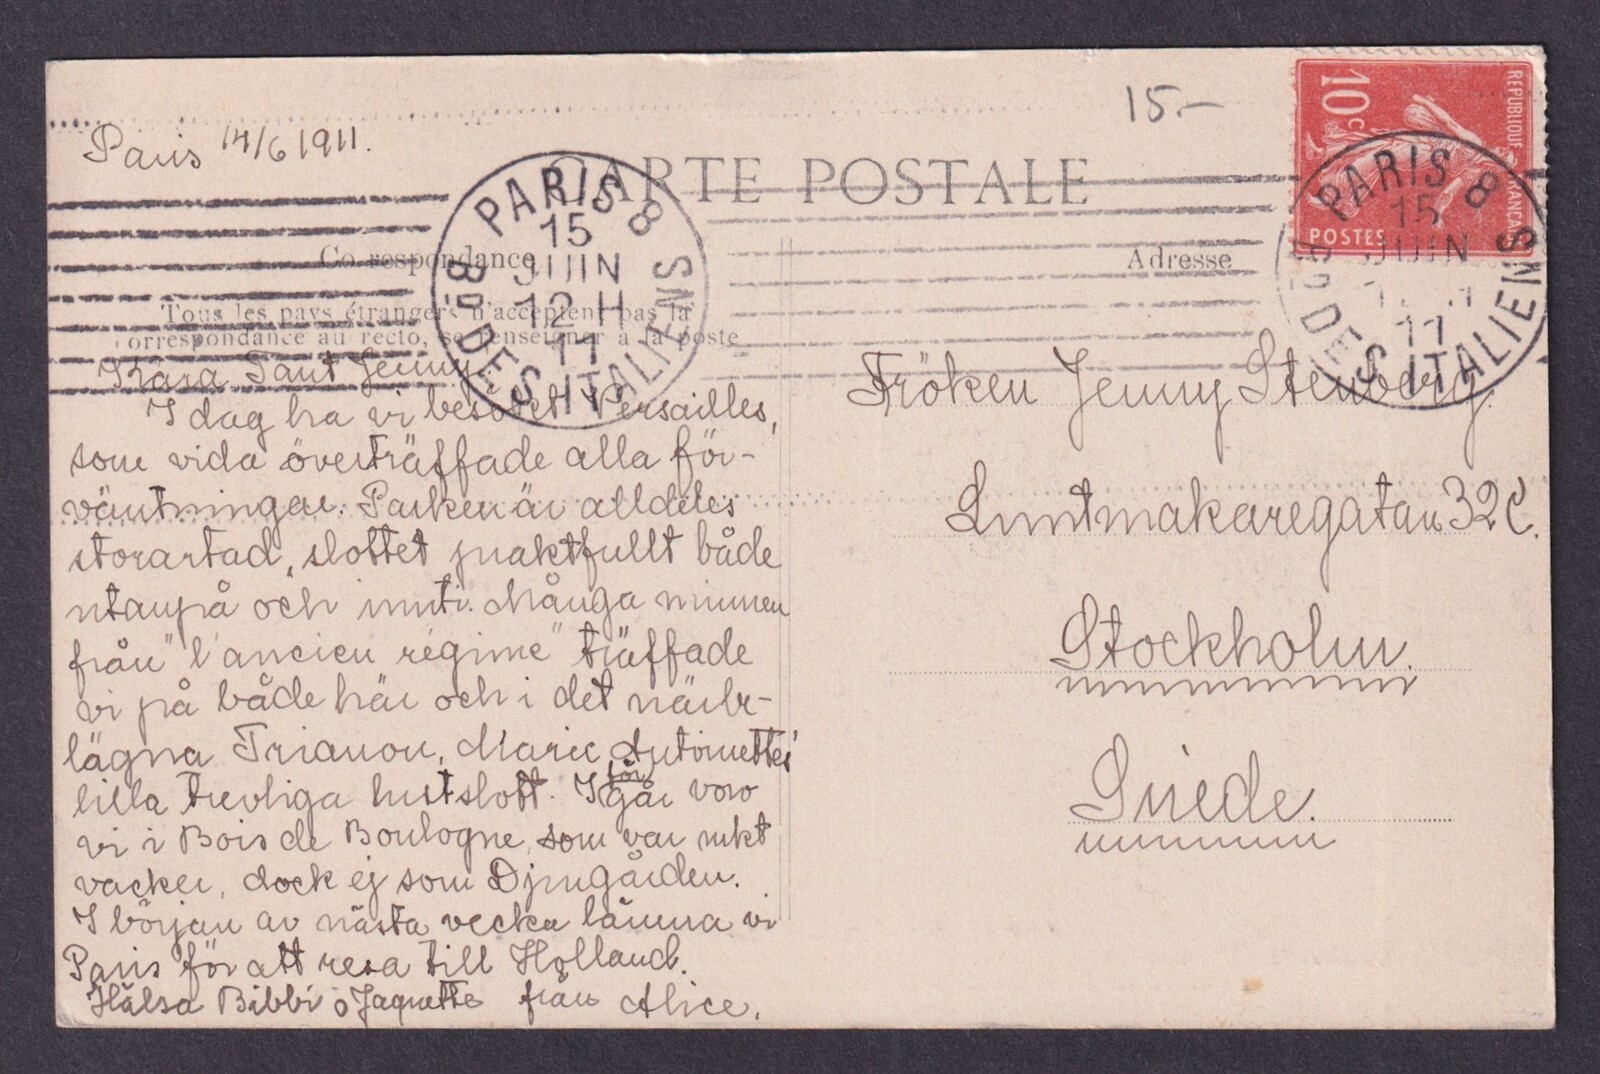 15.-
10 c
REPUBLIQUE FRANÇAISE
POSTES
Paris 14/6 1911.
CARTE POSTALE
PARIS 8
15
JUIN
12 H
11
Bd DES ITALIENS
PARIS 8
15
JUIN
11
Bd DES ITALIENS
Correspondance
Adresse
Tous les pays étrangers n'acceptent pas la
correspondance au recto, se renseigner à la poste
Kära Tant Jenny
I dag ha vi besökt Versailles,
som vida överträffade alla för-
väntningar. Parken är alldeles
storartad, slottet praktfullt både
utanpå och inuti. Många minnen
från "l'ancien régime" träffade
vi på både här och i det närbe-
lägna Trianon, Marie Antoinettes'
lilla trevliga lustslott. I förgår voro
vi i Bois de Boulogne, som var rukt
vacker, dock ej som Djurgården.
I början av nästa vecka lämna vi
Paris för att resa till Holland.
Hälsa Bibbi o Jaquette från Alice.
Fröken Jenny Stenberg.
Luntmakaregatan 32 C.
Stockholm.
Suède.